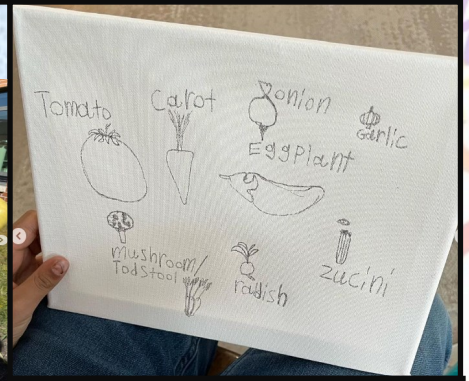 Tomato
Carot
onion
Garlic
EggPlant
mushroom/
Todstool
radish
zucini